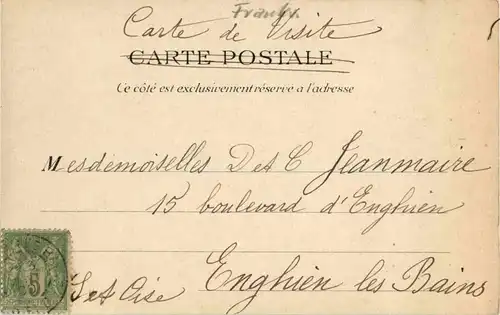 Frankr.
Carte de Visite
CARTE POSTALE
Ce côté est exclusivement réservé à l'adresse
Mesdemoiselles D et C Jeanmaire
15 boulevard d'Enghien
Enghien les Bains
5
S et Oise